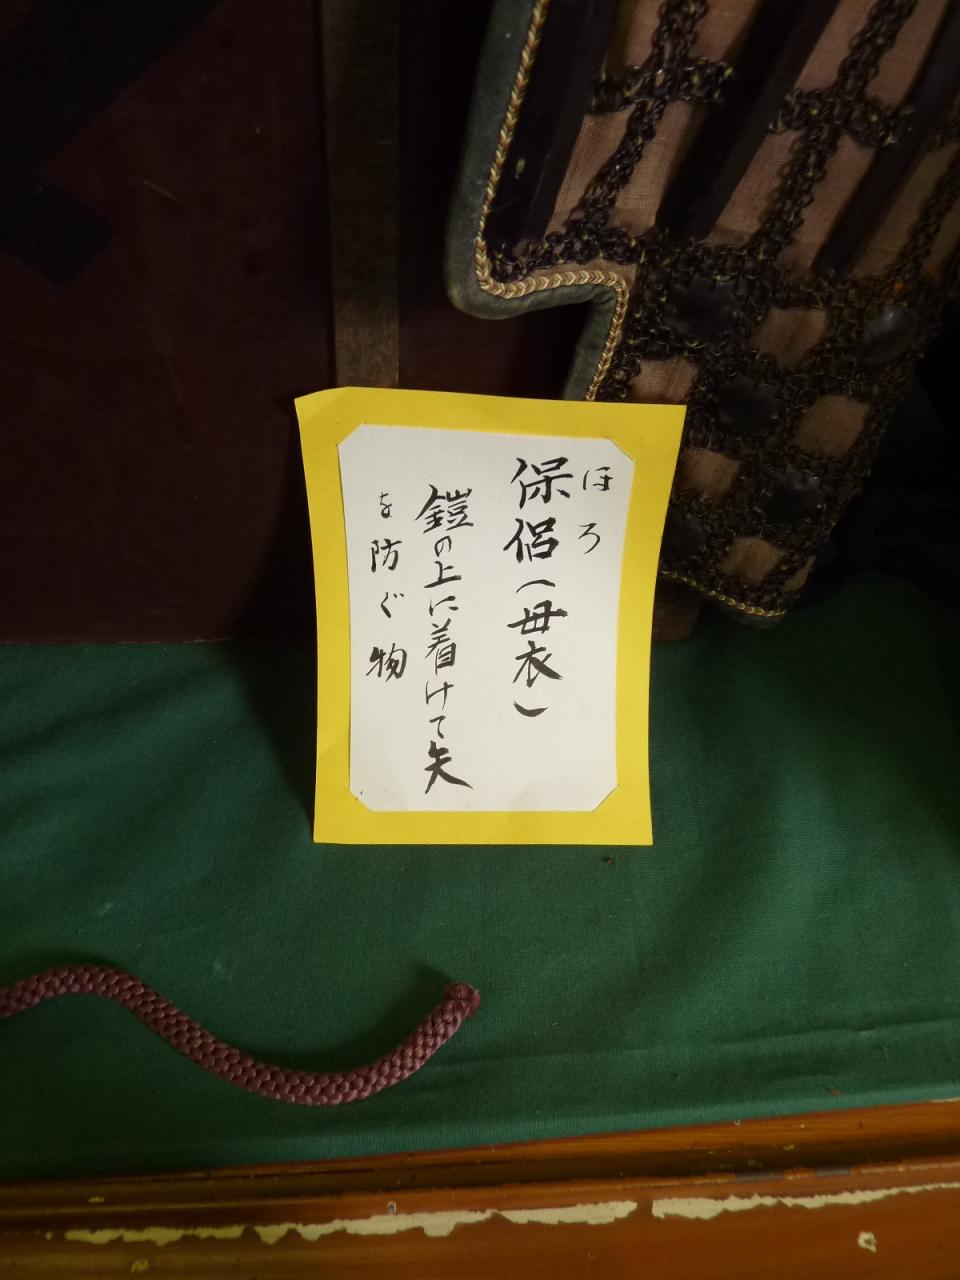 ほろ
保侶(母衣)
鎧の上に着けて矢
を防ぐ物